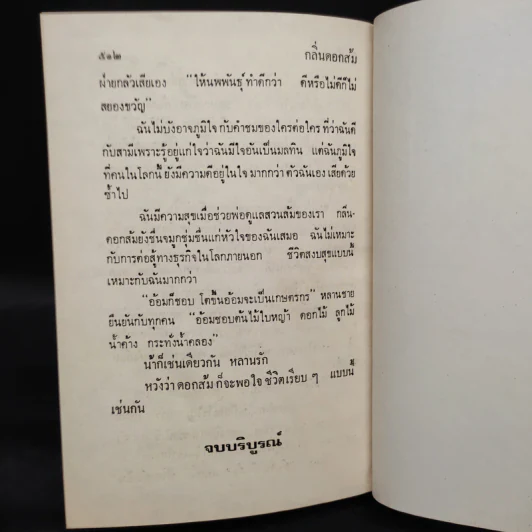 ๕๑๒ กลิ่นดอกส้ม
ฝ่ายกลัวเสียเอง "ให้นพพันธุ์ ทำดีกว่า ดีหรือไม่ดีก็ไม่
สยองขวัญ"
ฉันไม่บังอาจภูมิใจ กับคำชมของใครต่อใคร ที่ว่าฉันดี
กับสามีเพราะรู้อยู่แก่ใจว่าฉันมีใจอันเป็นมลทิน แต่ฉันภูมิใจ
ที่คนในโลกนี้ ยังมีความดีอยู่ในใจ มากกว่า ตัวฉันเอง เสียด้วย
ซ้ำไป
ฉันมีความสุขเมื่อช่วยพ่อดูแลสวนส้มของเรา กลิ่น-
ดอกส้มยังชื่นจมูกชุ่มชื่นแก่หัวใจของฉันเสมอ ฉันไม่เหมาะ
กับการต่อสู้ทางธุรกิจในโลกภายนอก ชีวิตสงบสุขแบบนี้
เหมาะกับฉันมากกว่า
"อ้อมก็ชอบ โตขึ้นอ้อมจะเป็นเกษตรกร" หลานชาย
ยืนยันกับทุกคน "อ้อมชอบต้นไม้ใบหญ้า ดอกไม้ ลูกไม้
น้ำค้าง กระทั่งน้ำคลอง"
น้าก็เช่นเดียวกัน หลานรัก
หวังว่า ดอกส้ม ก็จะพอใจ ชีวิตเรียบ ๆ แบบนี้
เช่นกัน
จบบริบูรณ์